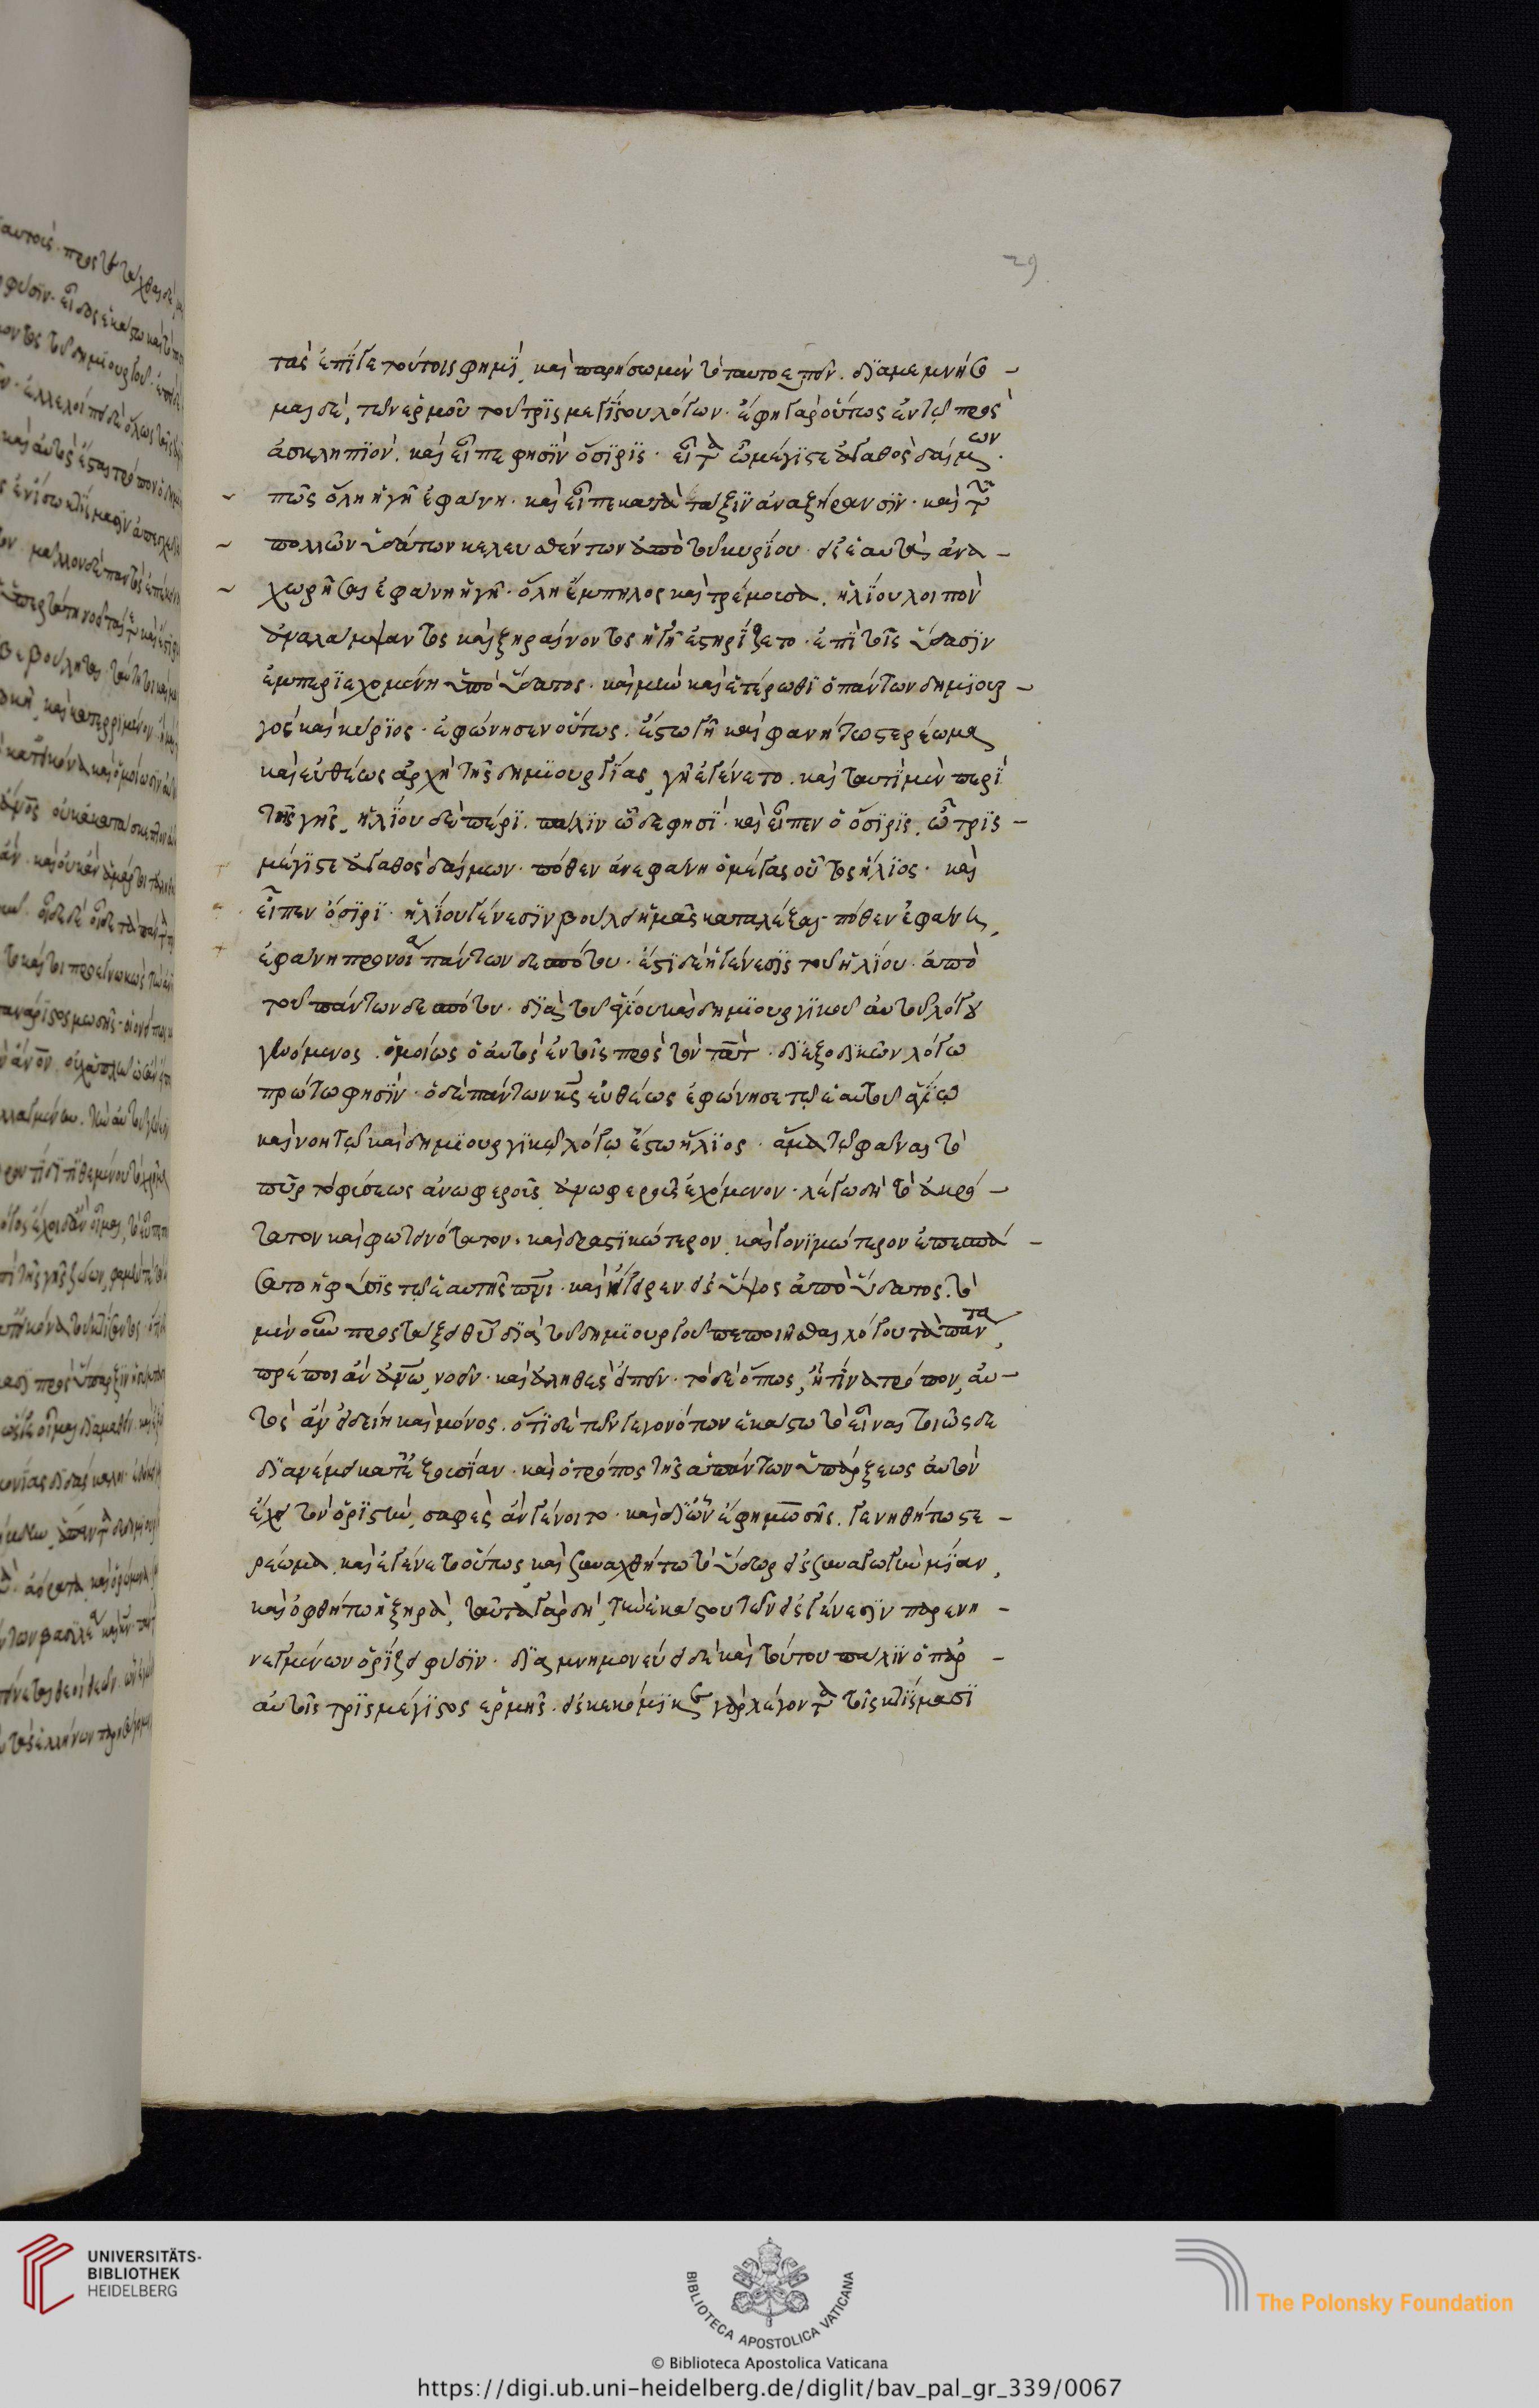 29
τας ἐπί γε τούτοις φημί, καὶ παρήσωμεν τὸ ταυτοεπεῖν. διαμεμνήσο-
μαι δὲ, τῶν ἑρμοῦ τοῦ τρισμεγίστου λόγων. ἔφη γὰρ οὕτως ἐν τῷ πρὸς
ἀσκληπιόν. καὶ εἶπε φησὶν ὄσιρις. εἶτα ὦ μέγιστε ἀγαθὸς δαίμων.
πῶς ὅλη ἡ γῆ ἐφάνη. καὶ εἶπε κατὰ τάξιν ἀναξήρανσιν. καὶ τῶν
πολλῶν ὑδάτων κελευσθέντων ἀπὸ τοῦ κυρίου εἰς ἑαυτὰ ἀνα-
χωρῆσαι ἐφάνη ἡ γῆ. ὅλη ἔμπηλος καὶ τρέμουσα. ἡλίου λοιπὸν
ἀναλάμψαντος καὶ ξηραίνοντος ἡ γῆ ἐστηρίζετο. ἐπὶ τοῖς ὕδασιν
ἐμπεριεχομένη ὑπὸ ὕδατος. καὶ μὴν καὶ ἑτέρωθι ὁ πάντων δημιουρ-
γὸς καὶ κύριος. ἐφώνησεν οὕτως. ἔστω γῆ καὶ φανήτω στερέωμα
καὶ εὐθέως ἀρχὴ τῆς δημιουργίας, γῆ ἐγένετο. καὶ ταυτὶ μὲν περὶ
τῆς γῆς, ἡλίου δὲ πέρι. πάλιν ὧδε φησί. καὶ εἶπεν ὁ ὄσιρις, ὦ τρισ-
μέγιστε ἀγαθὸς δαίμων. πόθεν ἀνεφάνη ὁ μέγας οὗτος ἥλιος. καὶ
εἶπεν ὄσιρι. ἡλίου γένεσιν βούλει ἡμᾶς καταλέξαι πόθεν ἐφάνη,
ἐφάνη προνοία πάντων δεσπότου. ἔστι δὲ ἡ γένεσις τοῦ ἡλίου. ἀπὸ
τοῦ πάντων δεσπότου. διὰ τοῦ ἁγίου καὶ δημιουργικοῦ αὐτοῦ λόγου
γενόμενος. ὁμοίως ὁ αὐτὸς ἐν τοῖς πρὸς τὸν τὰτ. διεξοδικῶν λόγω
πρώτω φησίν. ὁ δὲ πάντων κς εὐθέως ἐφώνησε τῷ ἑαυτοῦ ἁγίῳ
καὶ νοητῷ καὶ δημιουργικῷ λόγῳ ἔστω ἥλιος. ἅμα τῷ φάναι τὸ
πῦρ τὸ φύσεως ἀνωφεροῦς ἀνωφεροῦς ἐχόμενον. λέγω δὴ τὸ ἀκρό-
τατον καὶ φωτεινότατον. καὶ δραστικώτερον καὶ γονιμώτερον ἐπεσπά-
σατο ἡ φύσις τῷ ἑαυτῆς πνι. καὶ ἤγειρεν εἰς ὕψος ἀπὸ ὕδατος. τὸ
μὲν οὖν προστάξει θυ διὰ τοῦ δημιουργοῦ πεποιῆσθαι λόγου τὰ πάντα,
πρέποι ἂν ἀνω, νοεῖν. καὶ ἀληθὲς εἰπεῖν. τὸ δὲ ὅπως, ἢ τίνα τρόπον, αὐ-
τὸς ἂν εἰδείη καὶ μόνος. ὅτι δὲ τῶν γεγονότων ἑκάστω τὸ εἶναι τοιῶςδε
διανέμει κατ' ἐξουσίαν. καὶ ὁ τρόπος τῆς ἁπάντων ὑπάρξεως αὐτὸν
ἔχει τὸν ὁριστὴν, σαφὲς ἂν γένοιτο. καὶ δι' ὧν ἔφη μωσῆς. γενηθήτω στε-
ρέωμα καὶ ἐγένετο οὕτως καὶ συναχθήτω τὸ ὕδωρ εἰς συναγωγὴν μίαν,
καὶ ὀφθήτω ἡ ξηρὰ, ταῦτα γὰρ δὴ, τὴν ἑκάστου τῶν εἰς γένεσιν παρενη-
νεγμένων ὁρίζει φύσιν. διαμνημονεύει δὲ καὶ τούτου πάλιν ὁ παρ'
αὐτοῖς τρισμέγιστος ἑρμῆς. εἰσκεκόμικε γὰρ λέγοντα τοῖς κτίσμασι
UNIVERSITÄTS-
BIBLIOTHEK
HEIDELBERG
BIBLIOTECA APOSTOLICA VATICANA
The Polonsky Foundation
© Biblioteca Apostolica Vaticana
https://digi.ub.uni-heidelberg.de/diglit/bav_pal_gr_339/0067